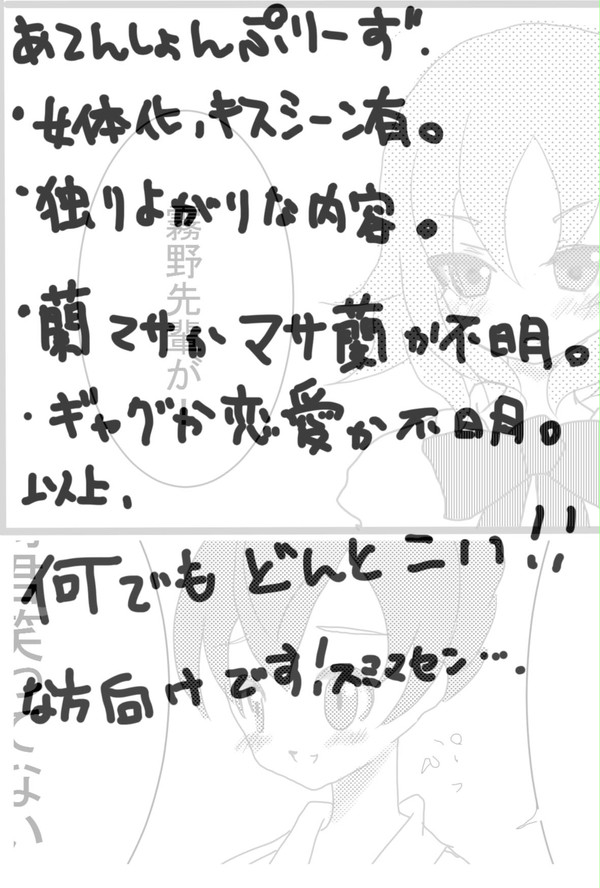 あてんしょんぷりーず.
・女体化、キスシーン有。
・独りよがりな内容。
・蘭マサかマサ蘭か不明。
・ギャグか恋愛か不明。
以上、
何でもどんとこい!!
な方向けです!スミマセン….
霧野先輩が
笑ってない